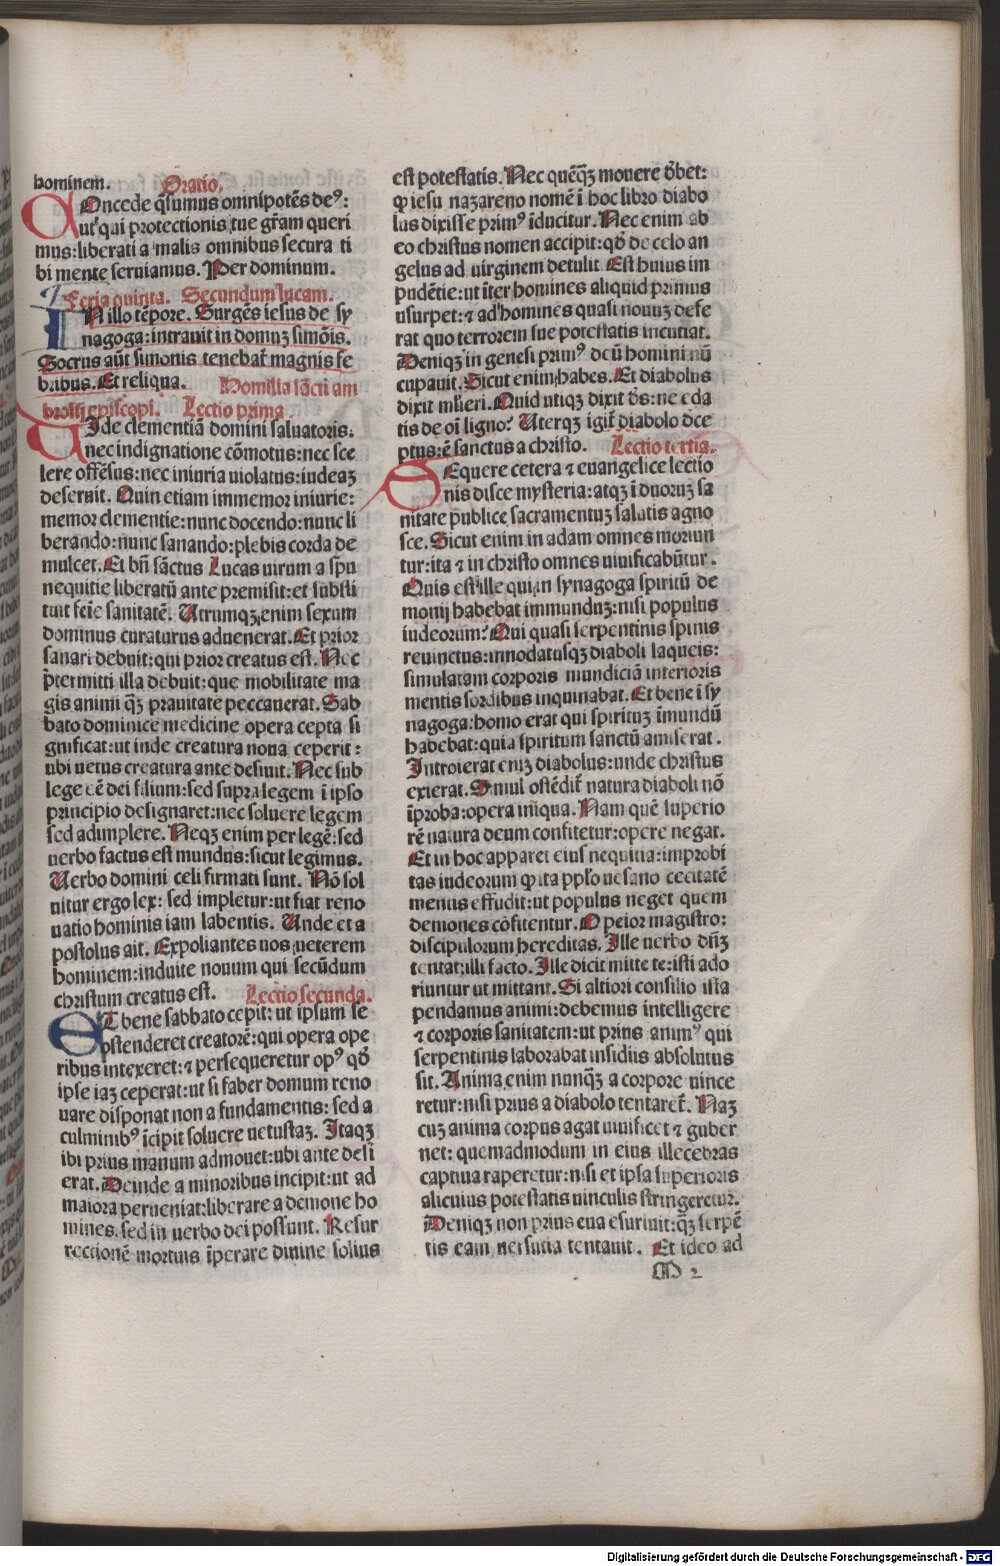 hominem. Oratio.
COncede q̄sumus omnipotēs deꝰ:
ut qui protectionis tue grām queri
mus: liberati a malis omnibus secura ti
bi mente seruiamus. Per dominum.
Feria quinta. Secundum lucam.
IN illo tēpore. Surgēs iesus de sy
nagoga: intrauit in domuʒ simōis.
Socrus aūt simonis tenebat̄ magnis fe
bribus. Et reliqua. Homilia sācti am
brosij episcopi. Lectio prima
UIde clementiā domini saluatoris:
nec indignatione cōmotus: nec sce
lere offēsus: nec iniuria uiolatus: iudeaʒ
deseruit. Quin etiam immemor iniurie:
memor clementie: nunc docendo: nunc li
berando: nunc sanando: plebis corda de
mulcet. Et bn̄ sāctus Lucas uirum a sp̄u
nequitie liberatū ante premisit: et substi
tuit feīe sanitatē. Utrumqʒ enim sexum
dominus curaturus aduenerat. Et prior
sanari debuit: qui prior creatus est. Nec
p̄termitti illa debuit: que mobilitate ma
gis animi q̄ʒ prauitate peccauerat. Sab
bato dominice medicine opera cepta si
gnificat: ut inde creatura noua ceperit:
ubi uetus creatura ante desiuit. Nec sub
lege eē dei filium: sed supra legem ī ipso
principio designaret: nec soluere legem
sed adimplere. Neqʒ enim per legē: sed
uerbo factus est mundus: sicut legimus.
Uerbo domini celi firmati sunt. Nō sol
uitur ergo lex: sed impletur: ut fiat reno
uatio hominis iam labentis. Unde et a
postolus ait. Expoliantes uos ueterem
hominem: induite nouum qui secūdum
christum creatus est. Lectio secunda.
ET bene sabbato cepit: ut ipsum se
ostenderet creatorē: qui opera ope
ribus intexeret: ⁊ persequeretur opꝰ qḋ
ipse iaʒ ceperat: ut si faber domum reno
uare disponat non a fundamentis: sed a
culminibꝰ īcipit soluere uetustaʒ. Itaqʒ
ibi prius manum admouet: ubi ante desi
erat. Deinde a minoribus incipit: ut ad
maiora perueniat: liberare a demone ho
mines. sed in uerbo dei possunt. Resur
rectionē mortuis īperare diuine solius
est potestatis. Nec quēqʒ mouere ḋbet:
ꝙ iesu nazareno nomē ī hoc libro diabo
lus dixisse primꝰ īducitur. Nec enim ab
eo christus nomen accipit: qḋ de celo an
gelus ad uirginem detulit. Est huius im
pudētie: ut īter homines aliquid primus
usurpet: ⁊ ad homines quasi nouuʒ defe
rat quo terrorem sue potestatis incutiat.
Deniqʒ in genesi primꝰ deū homini nū
cupauit. Sicut enim habes. Et diabolus
dixit mlieri. Quid utiqʒ dixit d̄s: ne eda
tis de oī ligno? Uterqʒ igit̄ diabolo dce
ptus: ē sanctus a christo. Lectio tertia.
SEquere cetera ⁊ euangelice lectio
nis disce mysteria: atqʒ ī duoruʒ sa
nitate publice sacramentuʒ salutis agno
sce. Sicut enim in adam omnes moriun
tur: ita ⁊ in christo omnes uiuificabūtur.
Quis est ille qui in synagoga spiritū de
monij habebat immunduʒ: nisi populus
iudeorum? Qui quasi serpentinis spinis
reuinctus: innodatusqʒ diaboli laqueis:
simulatam corporis mundiciā interioris
mentis sordibus inquinabat. Et bene ī sy
nagoga: homo erat qui spirituʒ īmundū
habebat: quia spiritum sanctū amiserat.
Introierat eniʒ diabolus: unde christus
exierat. Simul ostēdit̄ natura diaboli nō
īproba: opera iniqua. Nam quē superio
rē natura deum confitetur: opere negat.
Et in hoc apparet eius nequitia: improbi
tas iudeorum ꝙ ita pp̄lo uesano cecitatē
mentis effudit: ut populus neget quem
demones cōfitentur. O peior magistro:
discipulorum hereditas. Ille uerbo dn̄ʒ
tentat: illi facto. Ille dicit mitte te: isti ado
riuntur ut mittant. Si altiori consilio ista
pendamus animi: debemus intelligere
⁊ corporis sanitatem: ut prius animꝰ qui
serpentinis laborabat insidiis absolutus
sit. Anima enim nunq̄ʒ a corpore uince
retur: nisi prius a diabolo tentaret̄. Naʒ
cuʒ anima corpus agat uiuificet ⁊ guber
net: quemadmodum in eius illecebras
captiua raperetur: nisi et ipsa superioris
alicuius potestatis uinculis stringeretur.
Deniqʒ non prius eua esuriuit: q̄ʒ serpē
tis eam uersutia tentauit. Et ideo ad
M 2
Digitalisierung gefördert durch die Deutsche Forschungsgemeinschaft - DFG